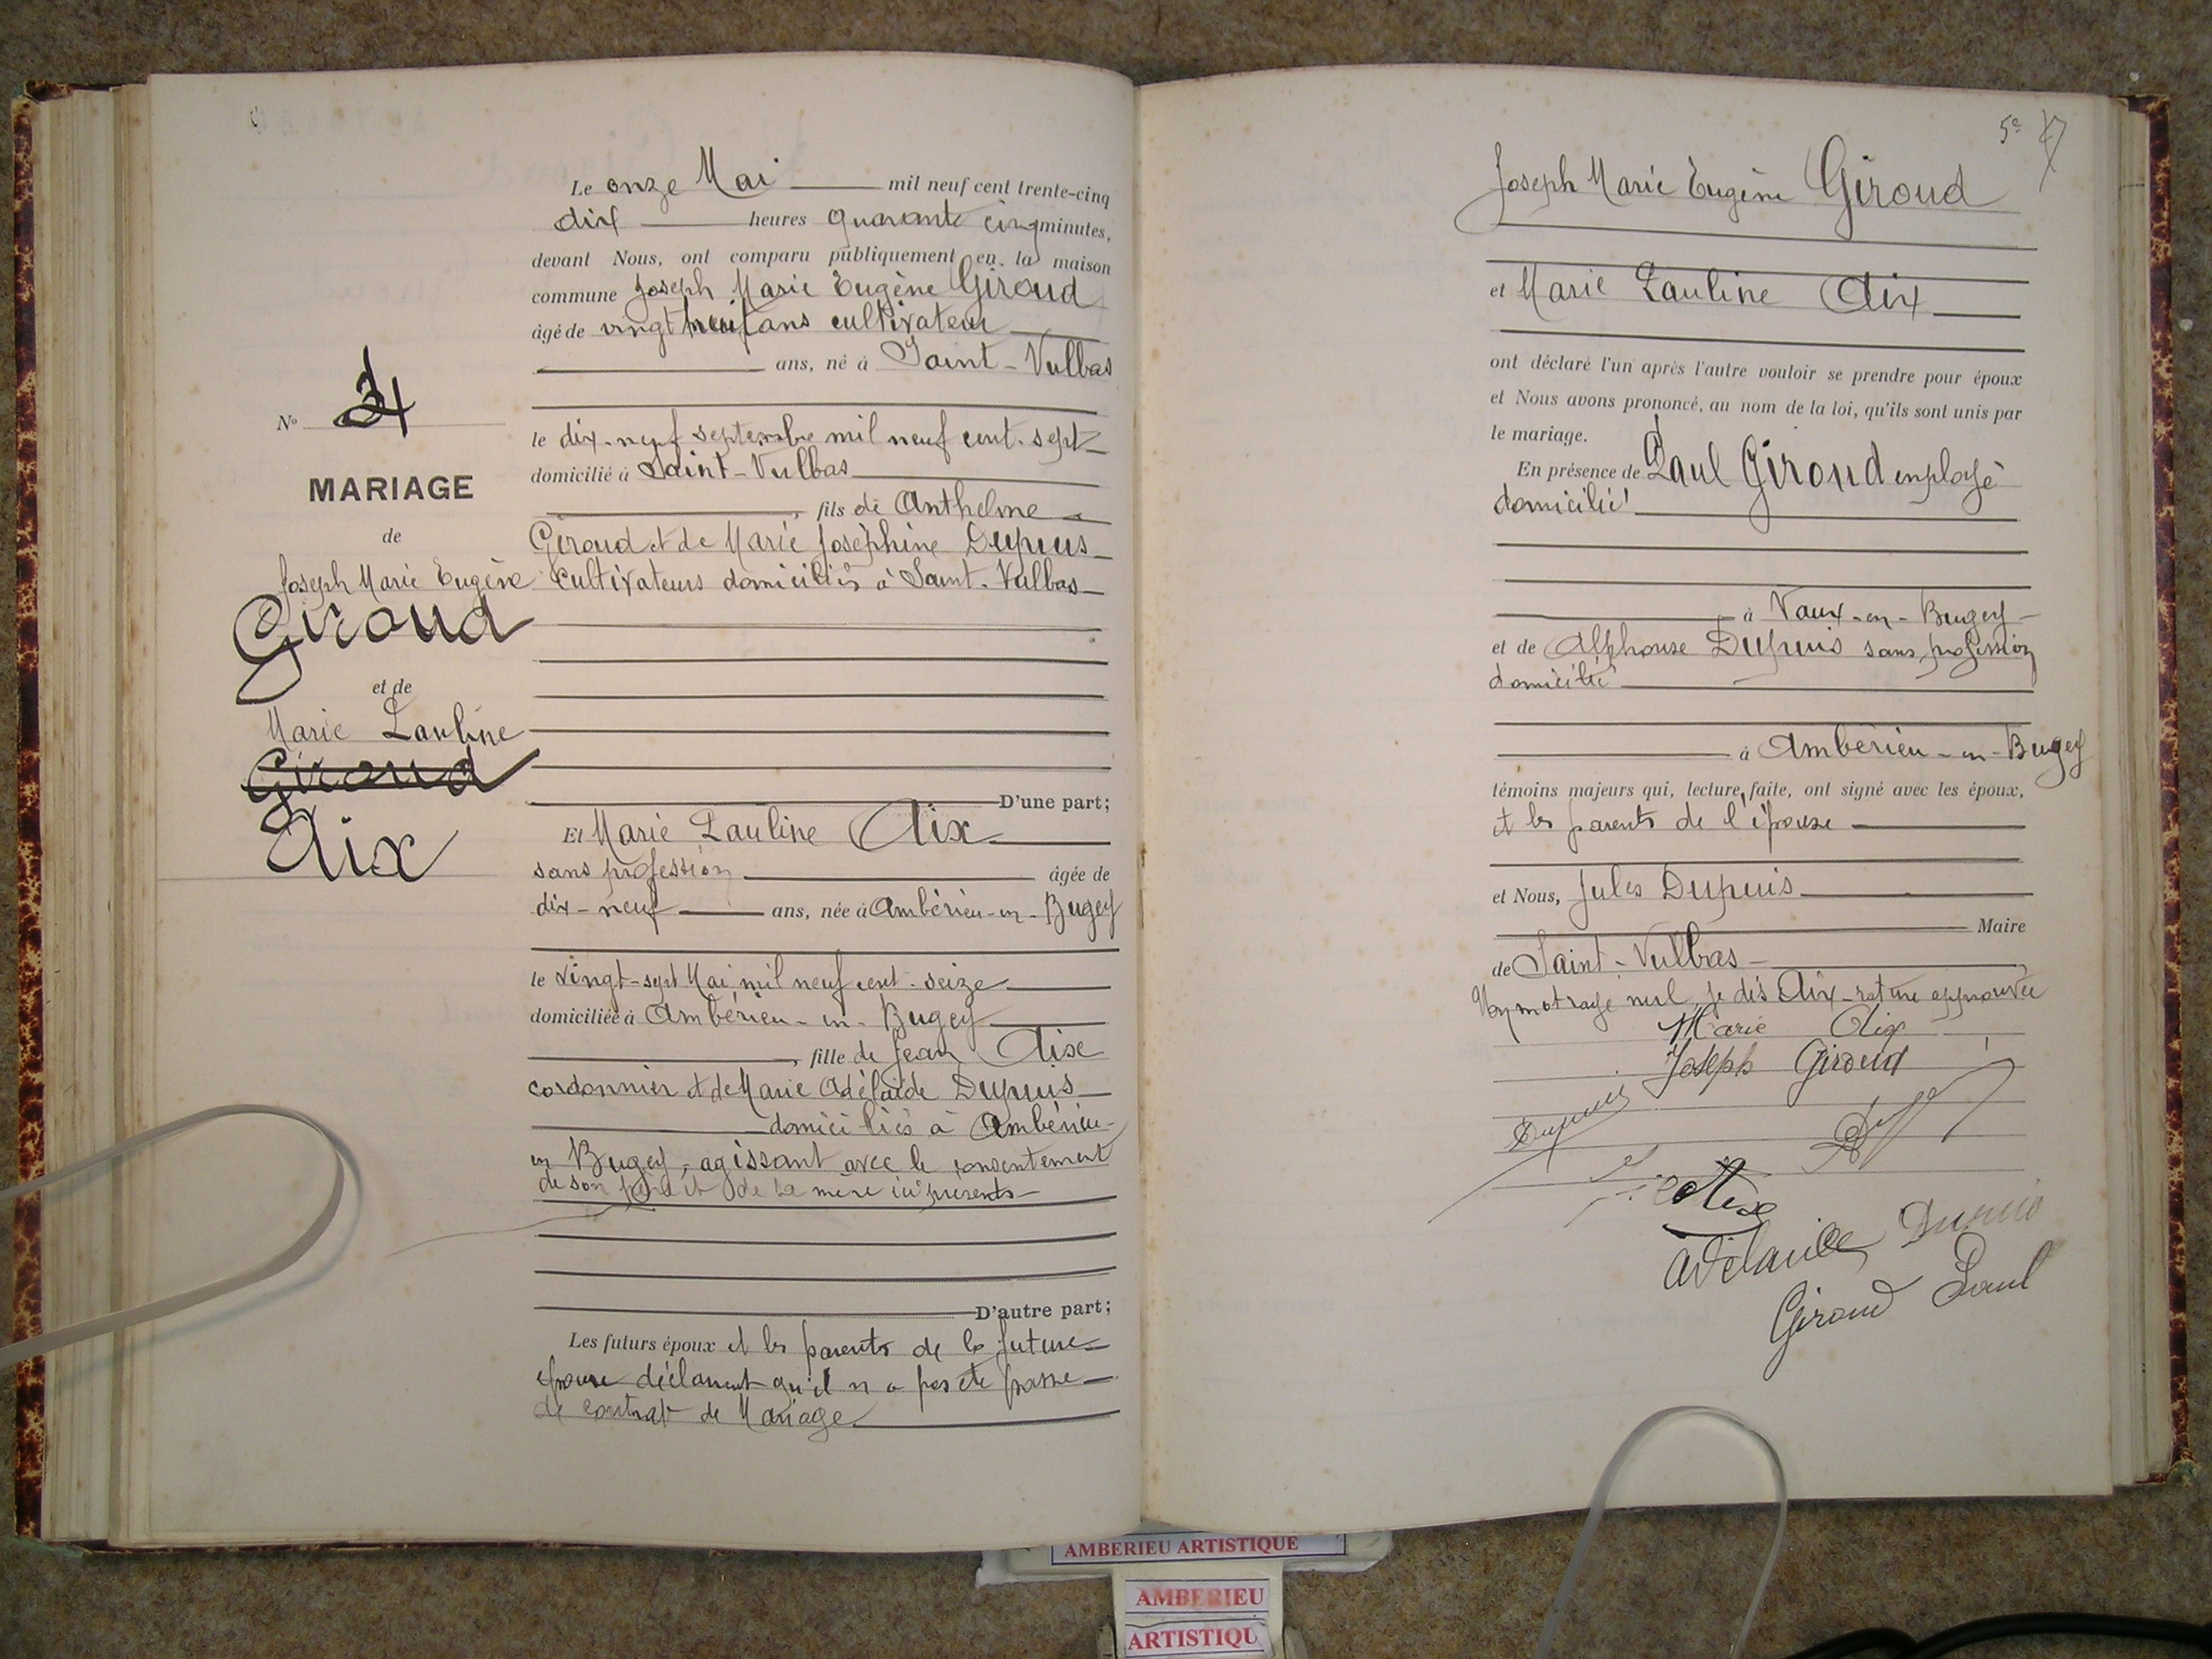 Le onze Mai mil neuf cent trente-cinq
dix heures quarante cinq minutes,
devant Nous, ont comparu publiquement en la maison
commune Joseph Marie Eugène Giroud
âgé de vingt neuf ans cultivateur
ans, né à Saint-Vulbas
le dix-neuf septembre mil neuf cent-sept
domicilié à Saint-Vulbas
, fils de Anthelme
Giroud et de Marie Joséphine Dupuis
cultivateurs domiciliés à Saint-Vulbas
D'une part;
Et Marie Pauline Aix
sans profession âgée de
dix-neuf ans, née à Ambérieu-en-Bugey
le vingt-sept Mai mil neuf cent-seize
domiciliée à Ambérieu-en-Bugey
, fille de Jean Aix
cordonnier et de Marie Adélaïde Dupuis
domiciliés à Ambérieu-
en Bugey, agissant avec le consentement
de son père et de sa mère ici présents
D'autre part;
Les futurs époux et les parents de la future
épouse déclarent qu'il n'a pas été passé
de contrat de Mariage
No
MARIAGE
de
Joseph Marie Eugène
Giroud
et de
Marie Pauline
Giroud
Aix
5e
Joseph Marie Eugène Giroud
et Marie Pauline Aix
ont déclaré l'un après l'autre vouloir se prendre pour époux
et Nous avons prononcé, au nom de la loi, qu'ils sont unis par
le mariage.
En présence de Paul Giroud employé
domicilié
à Vaux-en-Bugey
et de Alphonse Dupuis sans profession
domicilié
à Ambérieu-en-Bugey
témoins majeurs qui, lecture faite, ont signé avec les époux,
et les parents de l'épouse
et Nous, Jules Dupuis
Maire
de Saint-Vulbas
Un mot rayé nul, je dis Aix-rature approuvée
Marie Aix
Joseph Giroud
Dupuis
Adélaïde Dupuis
Giroud Paul
AMBERIEU ARTISTIQUE
AMBERIEU
ARTISTIQU